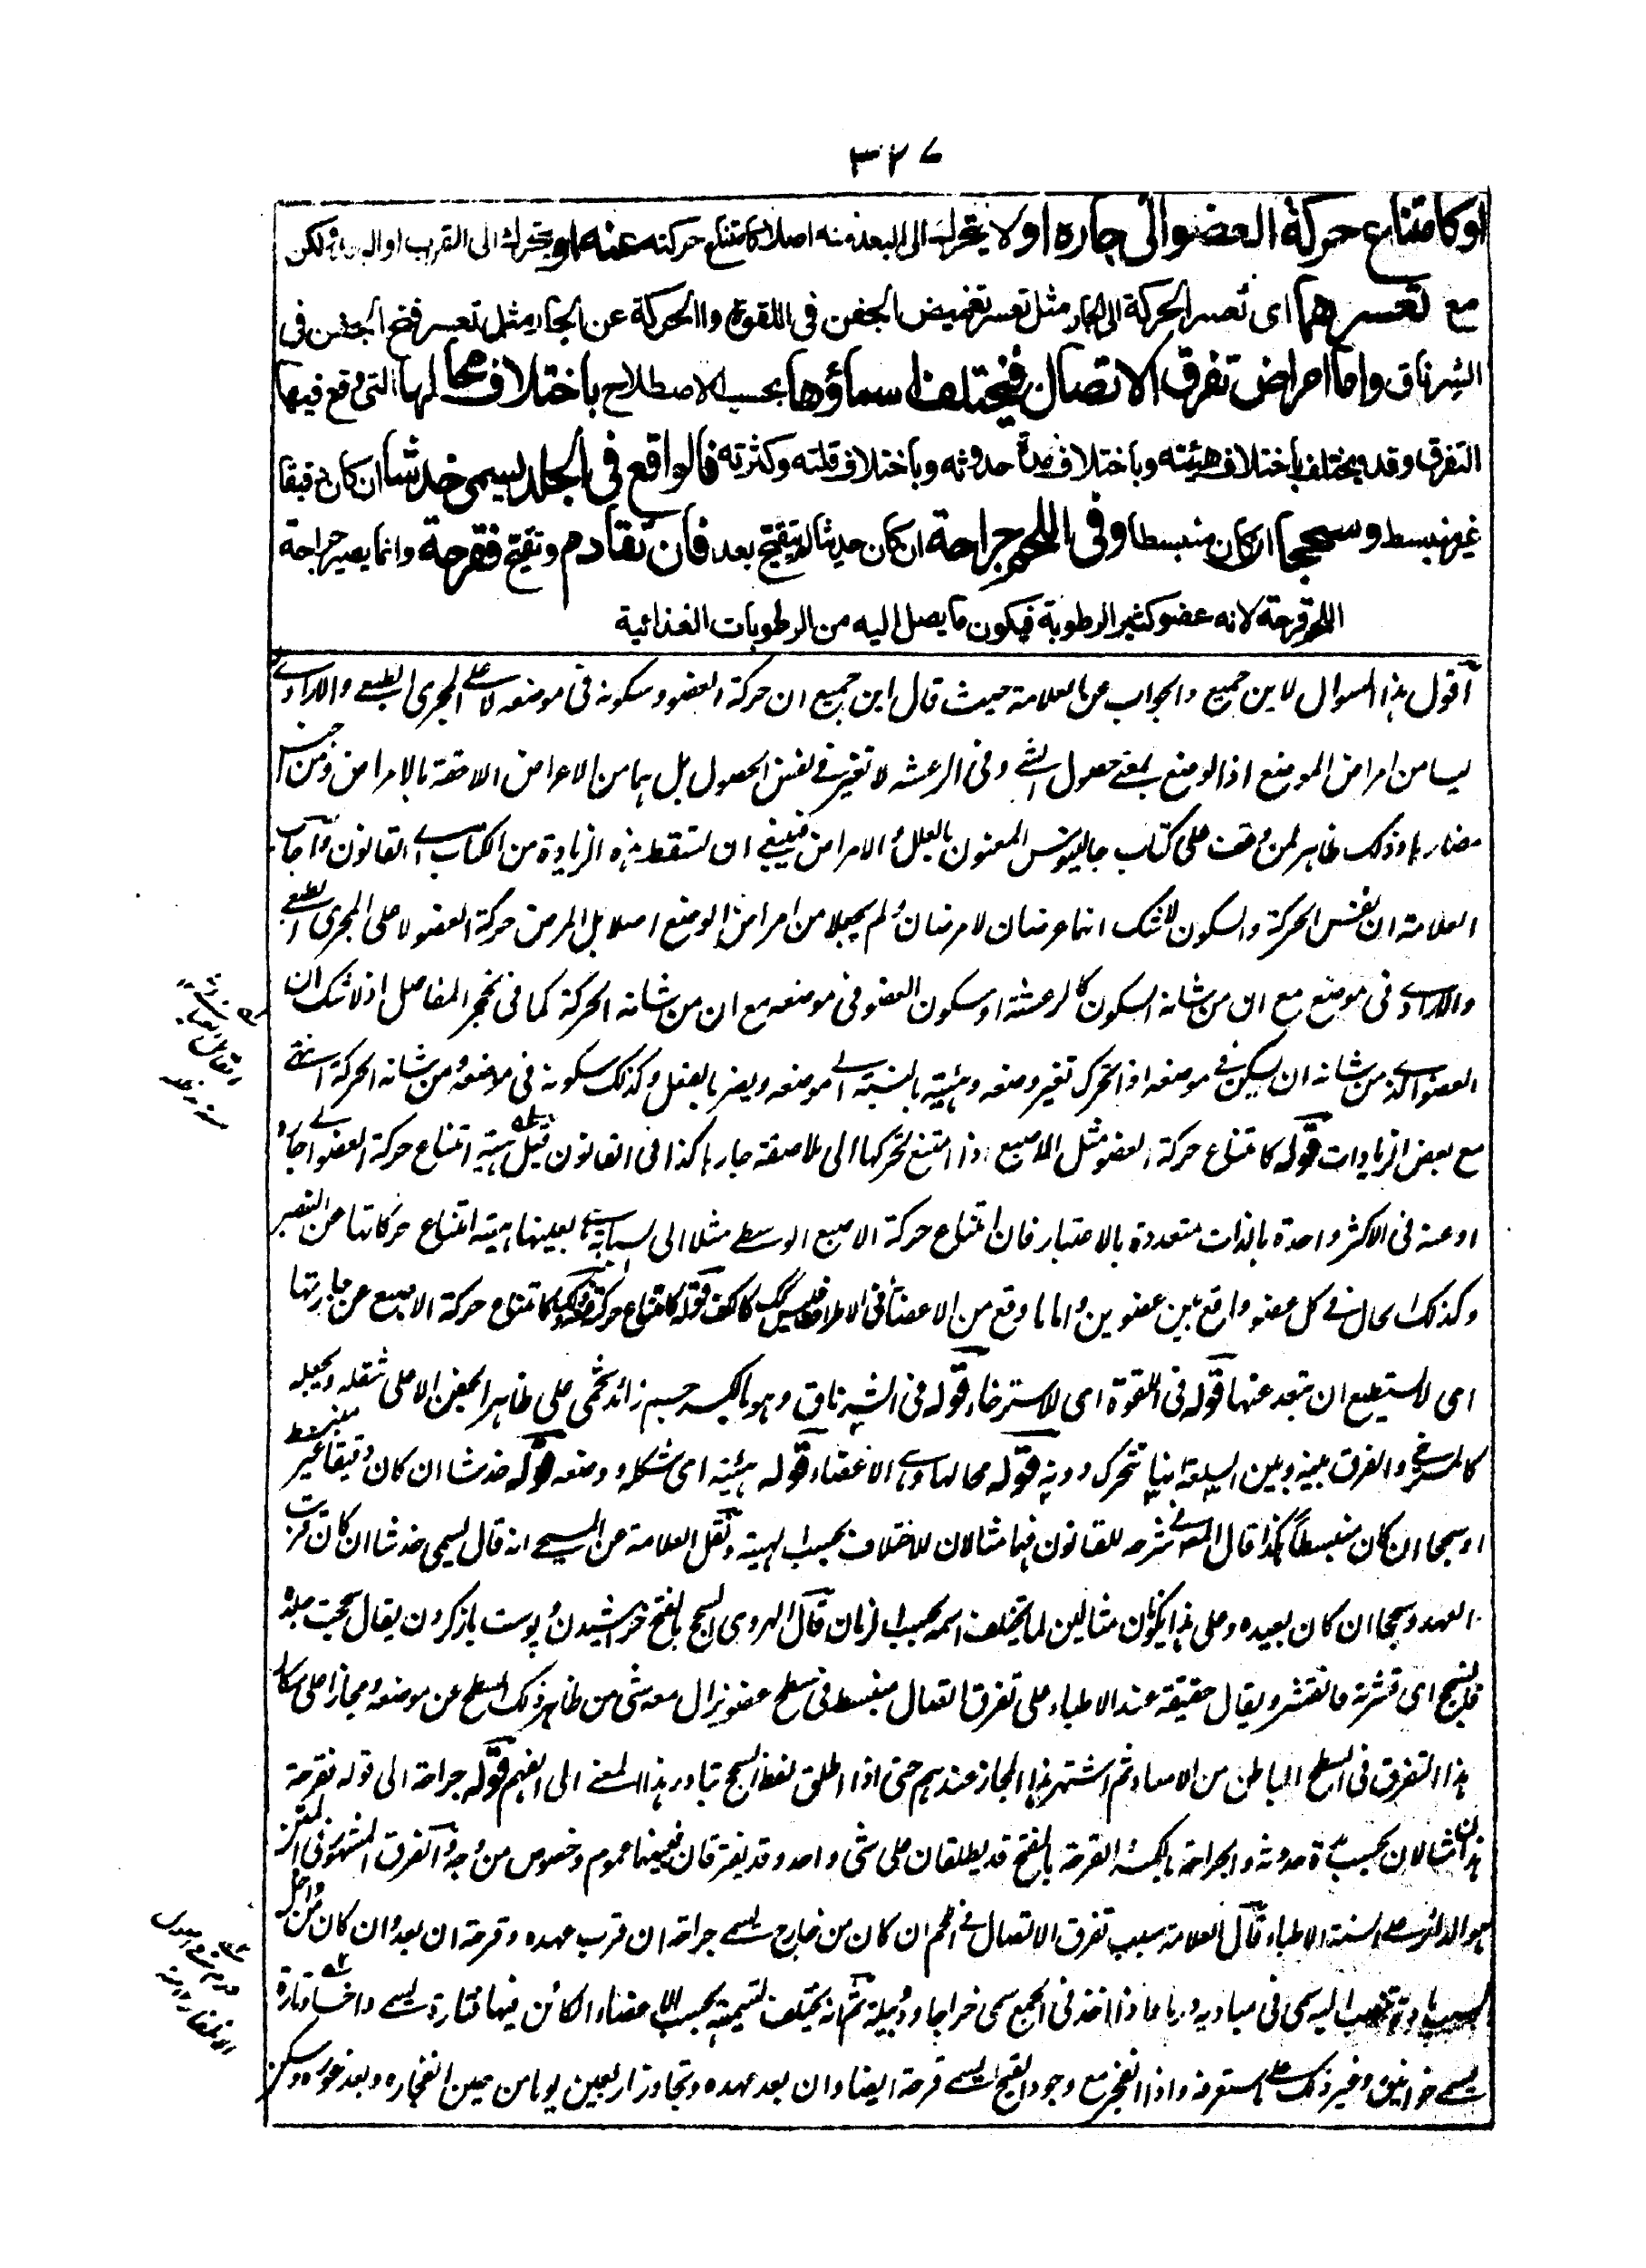 ٣٢٧
او كامتناع حركة العضو الى جاره او لا يتحرك الى البعد منه اصلا كامتناع حركته عنه او يتحرك الى القرب او البعد لكن
مع تعسرهما اى تعسر الحركة الى الجار مثل تعسر تغميض الجفن فى اللقوة والحركة عن الجار مثل تعسر فتح الجفن فى
الشرناق واما امراض تفرق الاتصال فيختلف اسماؤها بحسب الاصطلاح باختلاف محالها التى وقع فيها
التفرق وقد يختلف باختلاف هيئته وباختلاف مدة حدوثه وباختلاف قلته وكثرته فالواقع فى الجلد يسمى خدشا ان كان دقيقا
غير منبسط وسحجا ان كان منبسطا وفى اللحم جراحة ان كان حديثا لم يتقيح بعد فان تقادم وتقيح فقرحة وانما يصير جراحة
اللحم قرحة لانه عضو كثير الرطوبة فيكون ما يصل اليه من الرطوبات الغذائية
اقول هذا السوال لابن جميع والجواب عن العلامة حيث قال ابن جميع ان حركة العضو وسكونه فى موضعه لا على المجرى الطبعى والارادى
ليسا من امراض الموضع اذ الوضع بمعنى حصول الشى وفى الرعشه لا تغير فى نفس الحصول بل هما من الاعراض اللاحقة بالامراض ومن جنس
مضارها وذلك ظاهر لمن وقف على كتاب جالينوس المعنون بالعلل والامراض فينبغى ان تسقط هذه الزيادة من الكتاب اى القانون واجاب
العلامة ان نفس الحركة والسكون لا شك انهما عرضان لا مرضان ولم يجعلا من امراض الوضع اصلا بل المرض حركة العضو لا على المجرى الطبعى
والارادى فى موضع مع ان من شانه السكون كالرعشة او سكون العضو فى موضعه مع ان من شانه الحركة كما فى تحجر المفاصل اذ لا شك ان
العضو الذى من شانه ان يسكن فى موضعه اذا تحرك تغير وضعه وهيئته بالنسبة الى موضعه ويضر بالفعل وكذلك سكونه فى موضعه ومن شانه الحركة انتهى
مع بعض الزيادات قوله كامتناع حركة العضو مثل الاصبع اذا امتنع تحركها الى ملاصقة جارها كذا فى القانون قيل هيئة امتناع حركة العضو الى جاره
او عنه فى الاكثر واحدة بالذات متعددة بالاعتبار فان امتناع حركة الاصبع الوسطى مثلا الى السبابة بعينها هيئة امتناع حركاتها عن البنصر
وكذلك الحال فى كل عضو واقع بين عضوين واما ما وقع من الاعضاء فى الاطراف فليس كذلك كالكف قوله كامتناع حركته عنه كامتناع حركة الاصبع عن مجاورتها
اى لا يستطيع ان تبعد عنها قوله فى اللقوة اى لاسترخاء قوله فى الشرناق وهو بالكسر جسم زائد شحمى على ظاهر الجفن الاعلى يثقله ويجعله
كالمسترخى والفرق بينه وبين السلعة انها تتحرك دونه قوله محالها وهى الاعضاء قوله هيئته اى شكله ووضعه قوله خدشا ان كان دقيقا غير منبسط
او سحجا ان كان منبسطا هكذا قال فى شرحه للقانون فهما مثالان للاختلاف بحسب الهيئة ونقل العلامة عن المسيحى انه قال يسمى خدشا ان كانت قريب
العهد وسحجا ان كان بعيده وعلى هذا يكونان مثالين لما يختلف اسمه بحسب الزمان قال الهروى السحج بالفتح خراشيدن و پوست باز كردن يقال سحجت جلده
فانسحج اى قشرته فانقشر ويقال حقيقة عند الاطباء على تفرق اتصال منبسط فى سطح عضو يزال معه شى من ظاهر ذلك السطح عن موضعه ومجازا على
هذا التفرق فى السطح الباطن من الامعاء ثم اشتهر هذا المجاز عندهم حتى اذا اطلق لفظ السحج تبادر هذا المعنى الى الفهم قوله جراحة الى قوله فقرحة
هذان مثالان بحسب مدة حدوثه والجراحة بالكسر والقرحة بالفتح قد يطلقان على شى واحد وقد يفترقان فبينهما عموم وخصوص من وجه والفرق المشهور فى
هو الدائر على السنة الاطباء قال العلامة سبب تفرق الاتصال فى اللحم ان كان من خارج يسمى جراحة ان قرب عهده وقرحة ان بعد وان كان من داخل
بسبب مادة تنصب اليه سمى فى مباديه ورما فاذا اخذ فى الجمع سمى خراجا ودبيلة ثم انه يختلف تسميته بحسب الاعضاء الكائن فيها فتارة يسمى داخسا وتارة
يسمى خوانيق وغير ذلك على ما ستعرفه واذا انفجر مع وجود القيح يسمى قرحة ايضا وان بعد عهده وتجاوز اربعين يوما من حين انفجاره وبعد غوره وسكن